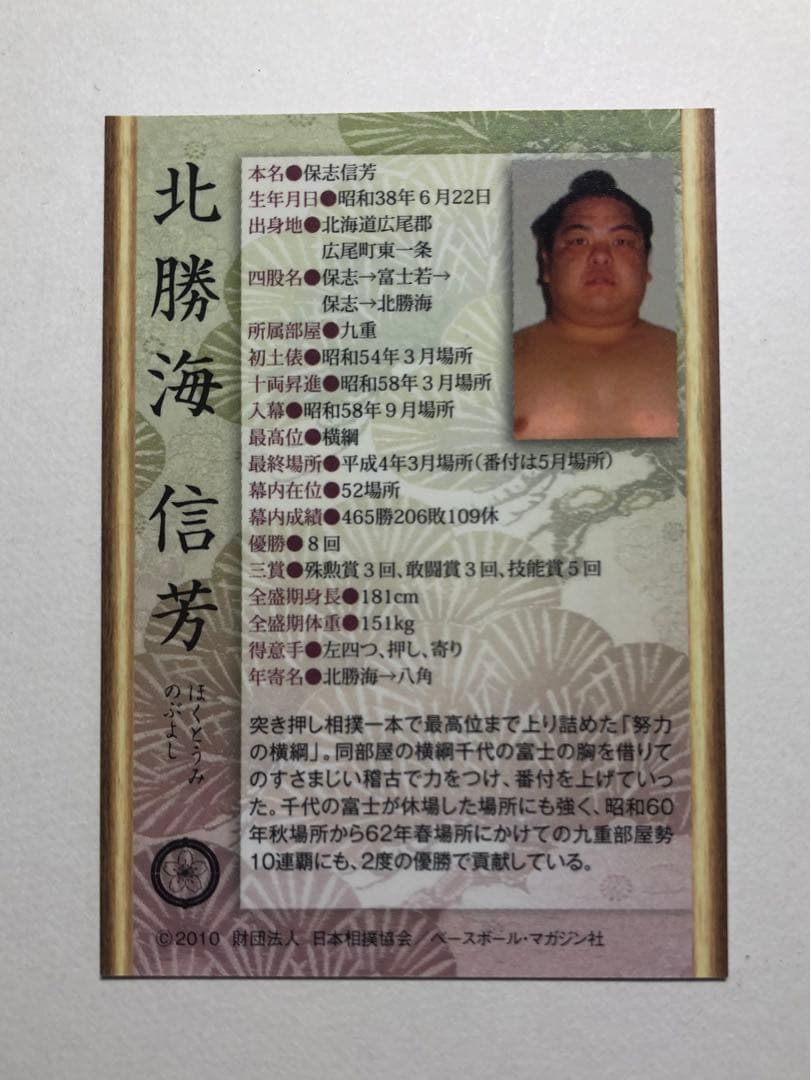 北勝海 信芳
ほくとうみ
のぶよし
本名●保志信芳
生年月日●昭和38年6月22日
出身地●北海道広尾郡
広尾町東一条
四股名●保志→富士若→
保志→北勝海
所属部屋●九重
初土俵●昭和54年3月場所
十両昇進●昭和58年3月場所
入幕●昭和58年9月場所
最高位●横綱
最終場所●平成4年3月場所(番付は5月場所)
幕内在位●52場所
幕内成績●465勝206敗109休
優勝●8回
三賞●殊勲賞3回、敢闘賞3回、技能賞5回
全盛期身長●181cm
全盛期体重●151kg
得意手●左四つ、押し、寄り
年寄名●北勝海→八角
突き押し相撲一本で最高位まで上り詰めた「努力
の横綱」。同部屋の横綱千代の富士の胸を借りて
のすさまじい稽古で力をつけ、番付を上げていっ
た。千代の富士が休場した場所にも強く、昭和60
年秋場所から62年春場所にかけての九重部屋勢
10連覇にも、2度の優勝で貢献している。
©2010 財団法人 日本相撲協会/ベースボール・マガジン社